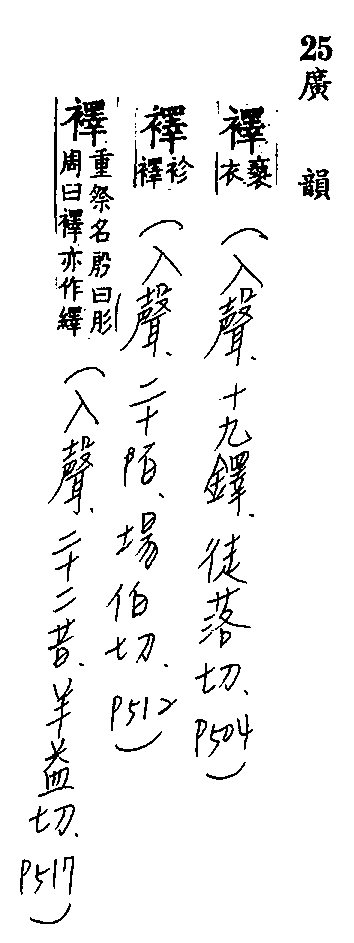 25廣韻
襗褻衣(入聲、十九鐸、徒落切、P504)
襗衫襗(入聲、二十陌、場伯切、P512)
襗重祭名殷曰肜周曰襗亦作繹(入聲、二十二昔、羊益切、P517)